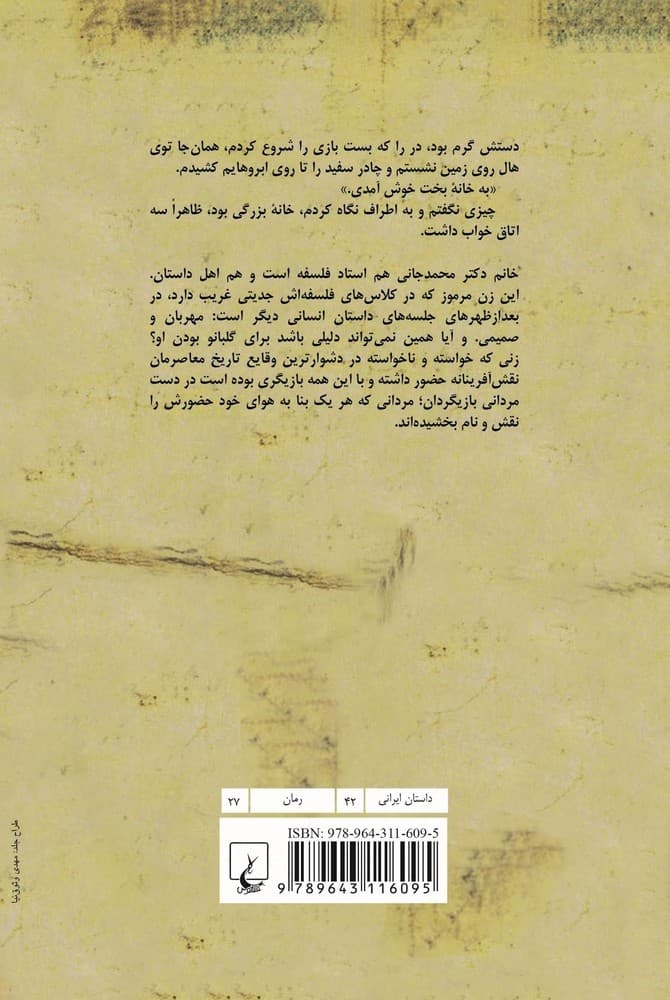 دستش گرم بود، در را که بست بازی را شروع کردم، همان‌جا توی
هال روی زمین نشستم و چادر سفید را تا روی ابروهایم کشیدم.
«به خانهٔ بخت خوش آمدی.»
چیزی نگفتم و به اطراف نگاه کردم، خانهٔ بزرگی بود، ظاهراً سه
اتاق خواب داشت.
خانم دکتر محمدجانی هم استاد فلسفه است و هم اهل داستان.
این زن مرموز که در کلاس‌های فلسفه‌اش جدیتی غریب دارد، در
بعدازظهرهای جلسه‌های داستان انسانی دیگر است: مهربان و
صمیمی. و آیا همین نمی‌تواند دلیلی باشد برای گلبانو بودن او؟
زنی که خواسته و ناخواسته در دشوارترین وقایع تاریخ معاصرمان
نقش‌آفرینانه حضور داشته و با این همه بازیگری بوده است در دست
مردانی بازیگردان؛ مردانی که هر یک بنا به هوای خود حضورش را
نقش و نام بخشیده‌اند.
داستان ایرانی ۴۲ رمان ۲۷
ISBN: 978-964-311-609-5
9 789643 116095
طراح جلد: مهدی وثوق‌نیا